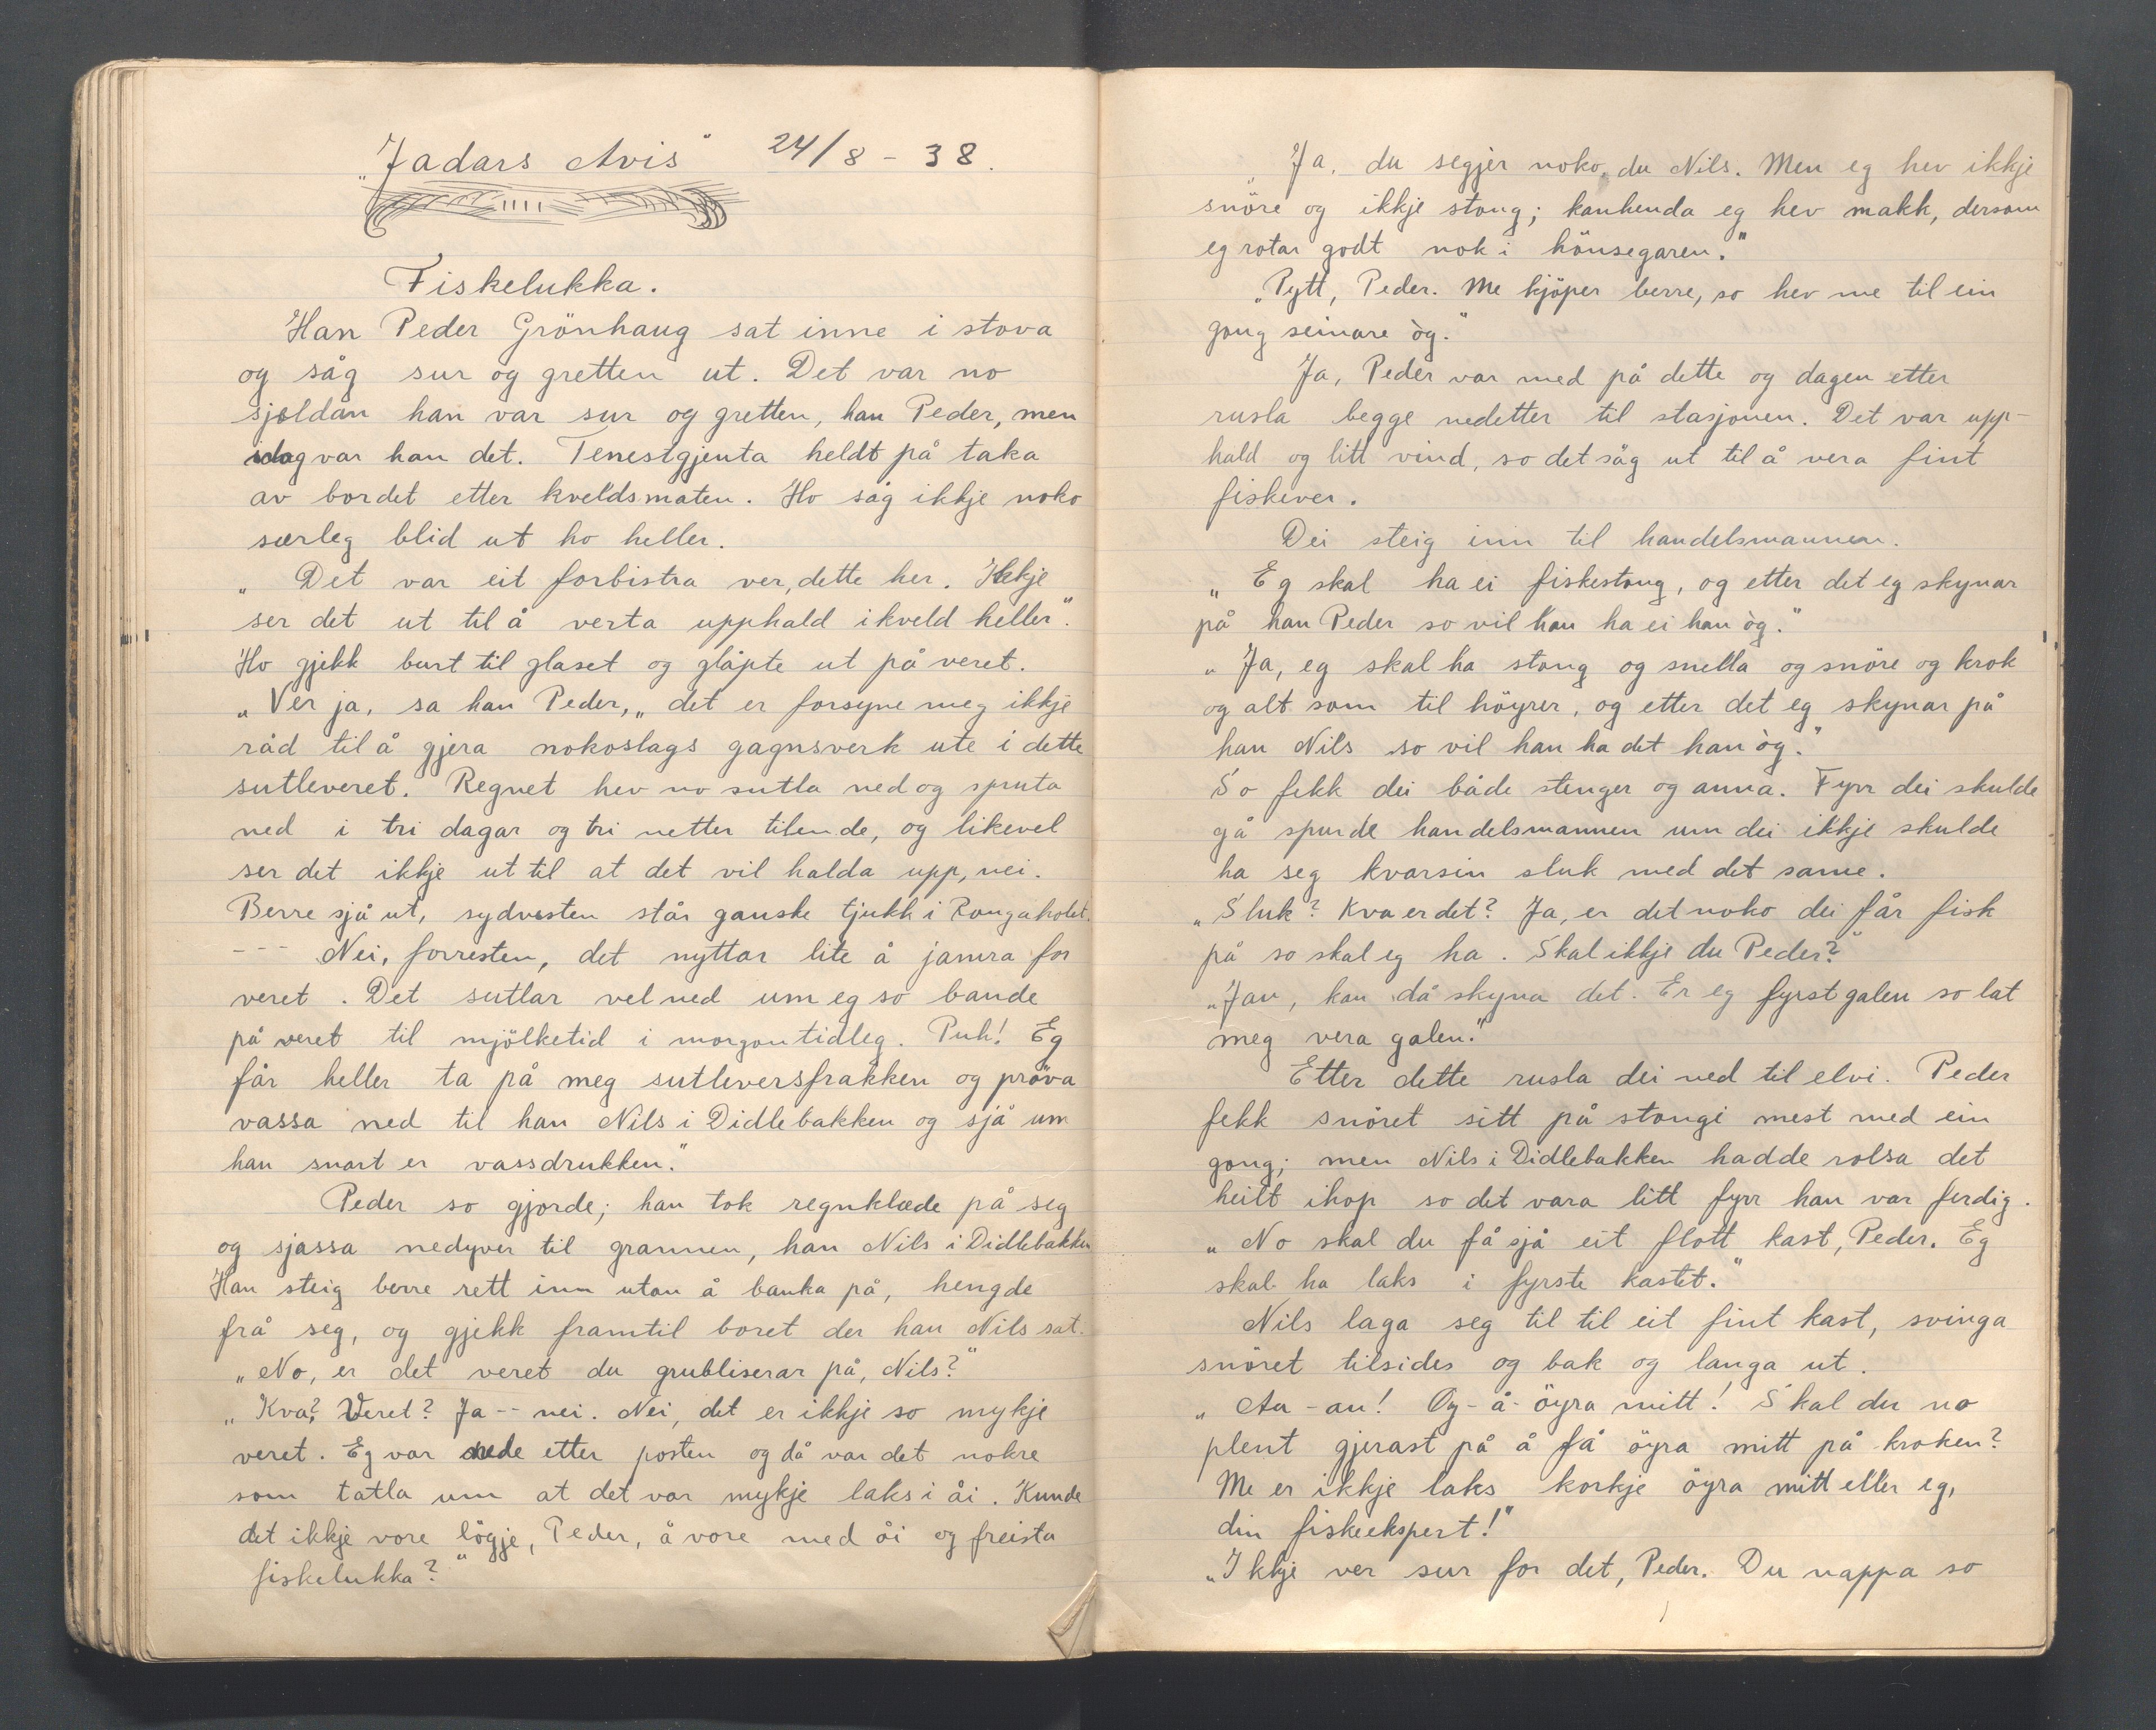 „Jadars Avis" 24/8 - 38.
Fiskelukka.
Han Peder Grönhaug sat inne i stova
og såg sur og gretten ut. Det var no
sjeldan han var sur og gretten, han Peder, men
idag var han det. Tenestgjenta heldt på taka
av bordet etter kveldsmaten. Ho såg ikkje noko
særleg blid ut ho heller.
„Det var eit forbistra ver, dette her. Ikkje
ser det ut til å verta upphald ikveld heller".
Ho gjekk burt til glaset og glåpte ut på veret.
„Ver ja, sa han Peder, „det er forsyne meg ikkje
råd til å gjera nokoslags gagnsverk ute i dette
sutleveret. Regnet hev no sutla ned og spruta
ned i tri dagar og tri netter tilende, og likevel
ser det ikkje ut til at det vil halda upp, nei.
Berre sjå ut, sydvesten står ganske tjukk i Rongaholet.
--- Nei, forresten, det nyttar lite å jamra for
veret. Det sutlar vel ned um eg so bande
på veret til mjölketid i morgon tidleg. Puh! Eg
får heller ta på meg sutleversfrakken og pröva
vassa ned til han Nils i Didlebakken og sjå um
han snart er vassdrukken."
Peder so gjorde; han tok regnklæde på seg
og sjassa nedyver til grannen, han Nils i Didlebakken
Han steig berre rett inn utan å banka på, hengde
frå seg, og gjekk framtil boret der han Nils sat.
„No, er det veret du grubliserar på, Nils?"
„Kva? Veret? Ja -- nei. Nei, det er ikkje so mykje
veret. Eg var nede etter posten og då var det nokre
som tatla um at det var mykje laks i åi. Kunde
det ikkje vore lögje, Peder, å vore med åi og freista
fiskelukka?"
„Ja, du segjer noko, du Nils. Men eg hev ikkje
snöre og ikkje stong; kanhenda eg hev makk, dersom
eg rotar godt nok i hönsegaren."
„Pytt, Peder. Me kjöper berre, so hev me til ein
gong seinare òg."
Ja, Peder var med på dette og dagen etter
rusla begge nedetter til stasjonen. Det var upp-
hald og litt vind, so det såg ut til å vera fint
fiskever.
Dei steig inn til handelsmannen.
„Eg skal ha ei fiskestong, og etter det eg skynar
på han Peder so vil han ha ei han òg."
„Ja, eg skal ha stong og snella og snöre og krok
og alt som til höyrer, og etter det eg skynar på
han Nils so vil han ha det han òg."
So fekk dei både stenger og anna. Fyrr dei skulde
gå spurde handelsmannen um dei ikkje skulde
ha seg kvarsin sluk med det same.
„Sluk? Kva er det? Ja, er det noko dei får fisk
på so skal eg ha. Skal ikkje du Peder?"
„Jau, kan då skyna det. Er eg fyrst galen so lat
meg vera galen."
Etter dette rusla dei ned til elvi. Peder
fekk snöret sitt på stongi mest med ein
gong; men Nils i Didlebakken hadde rolsa det
heilt ihop so det vara litt fyrr han var ferdig.
„No skal du få sjå eit flott kast, Peder. Eg
skal ha laks i fyrste kastet."
Nils laga seg til til eit fint kast, svinga
snöret tilsides og bak og langa ut.
„Au - au! Oy - å - öyra mitt! Skal du no
plent gjerast på å få öyra mitt på kroken?
Me er ikkje laks korkje öyra mitt eller eg,
din fiskeekspert!"
„Ikkje ver sur for det, Peder. Du nappa so